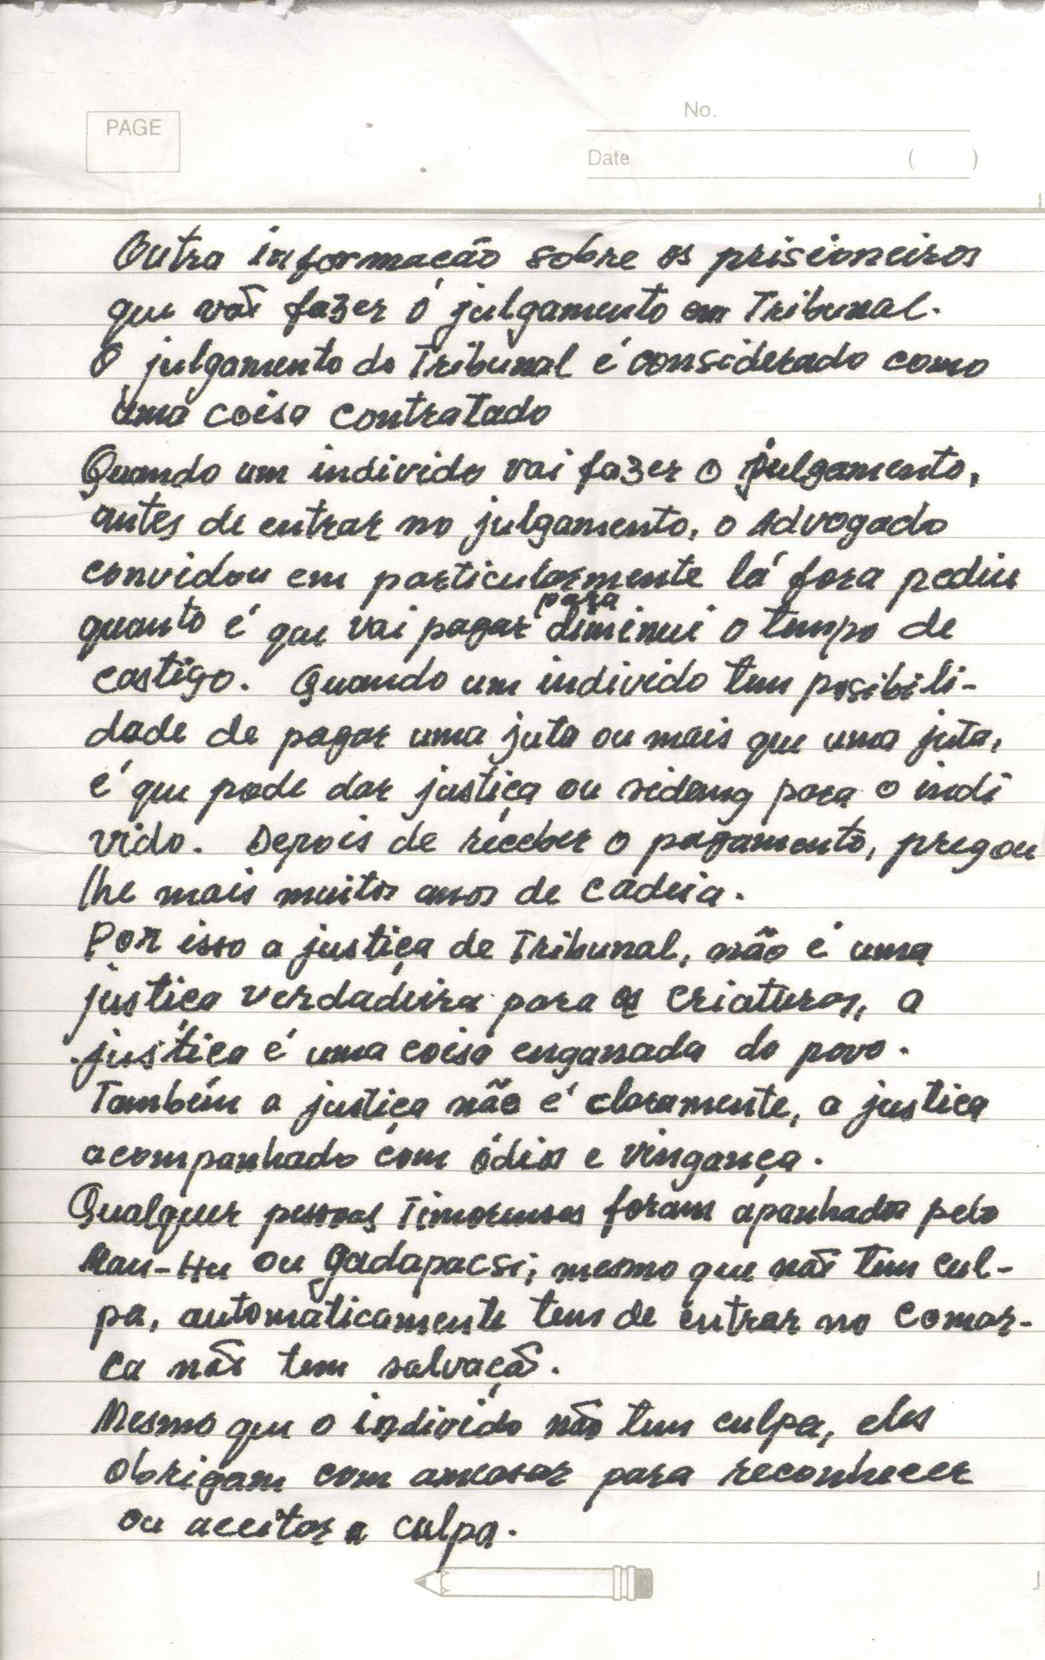 PAGE
No.
Date ( )
Outra informacão sobre os prisioneiros
que vão fazer o julgamento em Tribunal.
O julgamento do Tribunal é considerado como
uma coisa contratado
Quando um individo vai fazer o julgamento,
antes de entrar no julgamento, o Advogado
convidou em particularmente lá fora pediu
quanto é que vai pagar para diminui o tempo de
castigo. Quando um individo tem posibili-
dade de pagar uma juta ou mais que uma juta,
é que pode dar justiça ou sidang para o indi
vido. Depois de receber o pagamento, pregou
lhe mais muitos anos de cadeia.
Por isso a justiça de Tribunal, não é uma
justiça verdadeira para as criaturas, a
justiça é uma coisa enganada do povo.
Também a justiça não é claramente, a justiça
acompanhado com ódios e vingança.
Qualquer pessoas Timorenses foram apanhados pelo
Mau-Hu ou Gadapacsi, mesmo que não tem cul-
pa, automàticamente tem de entrar no Comar-
ca não tem salvação.
Mesmo que o individo não tem culpa, eles
obrigam com ameaçar para reconhecer
ou aceitar a culpa.